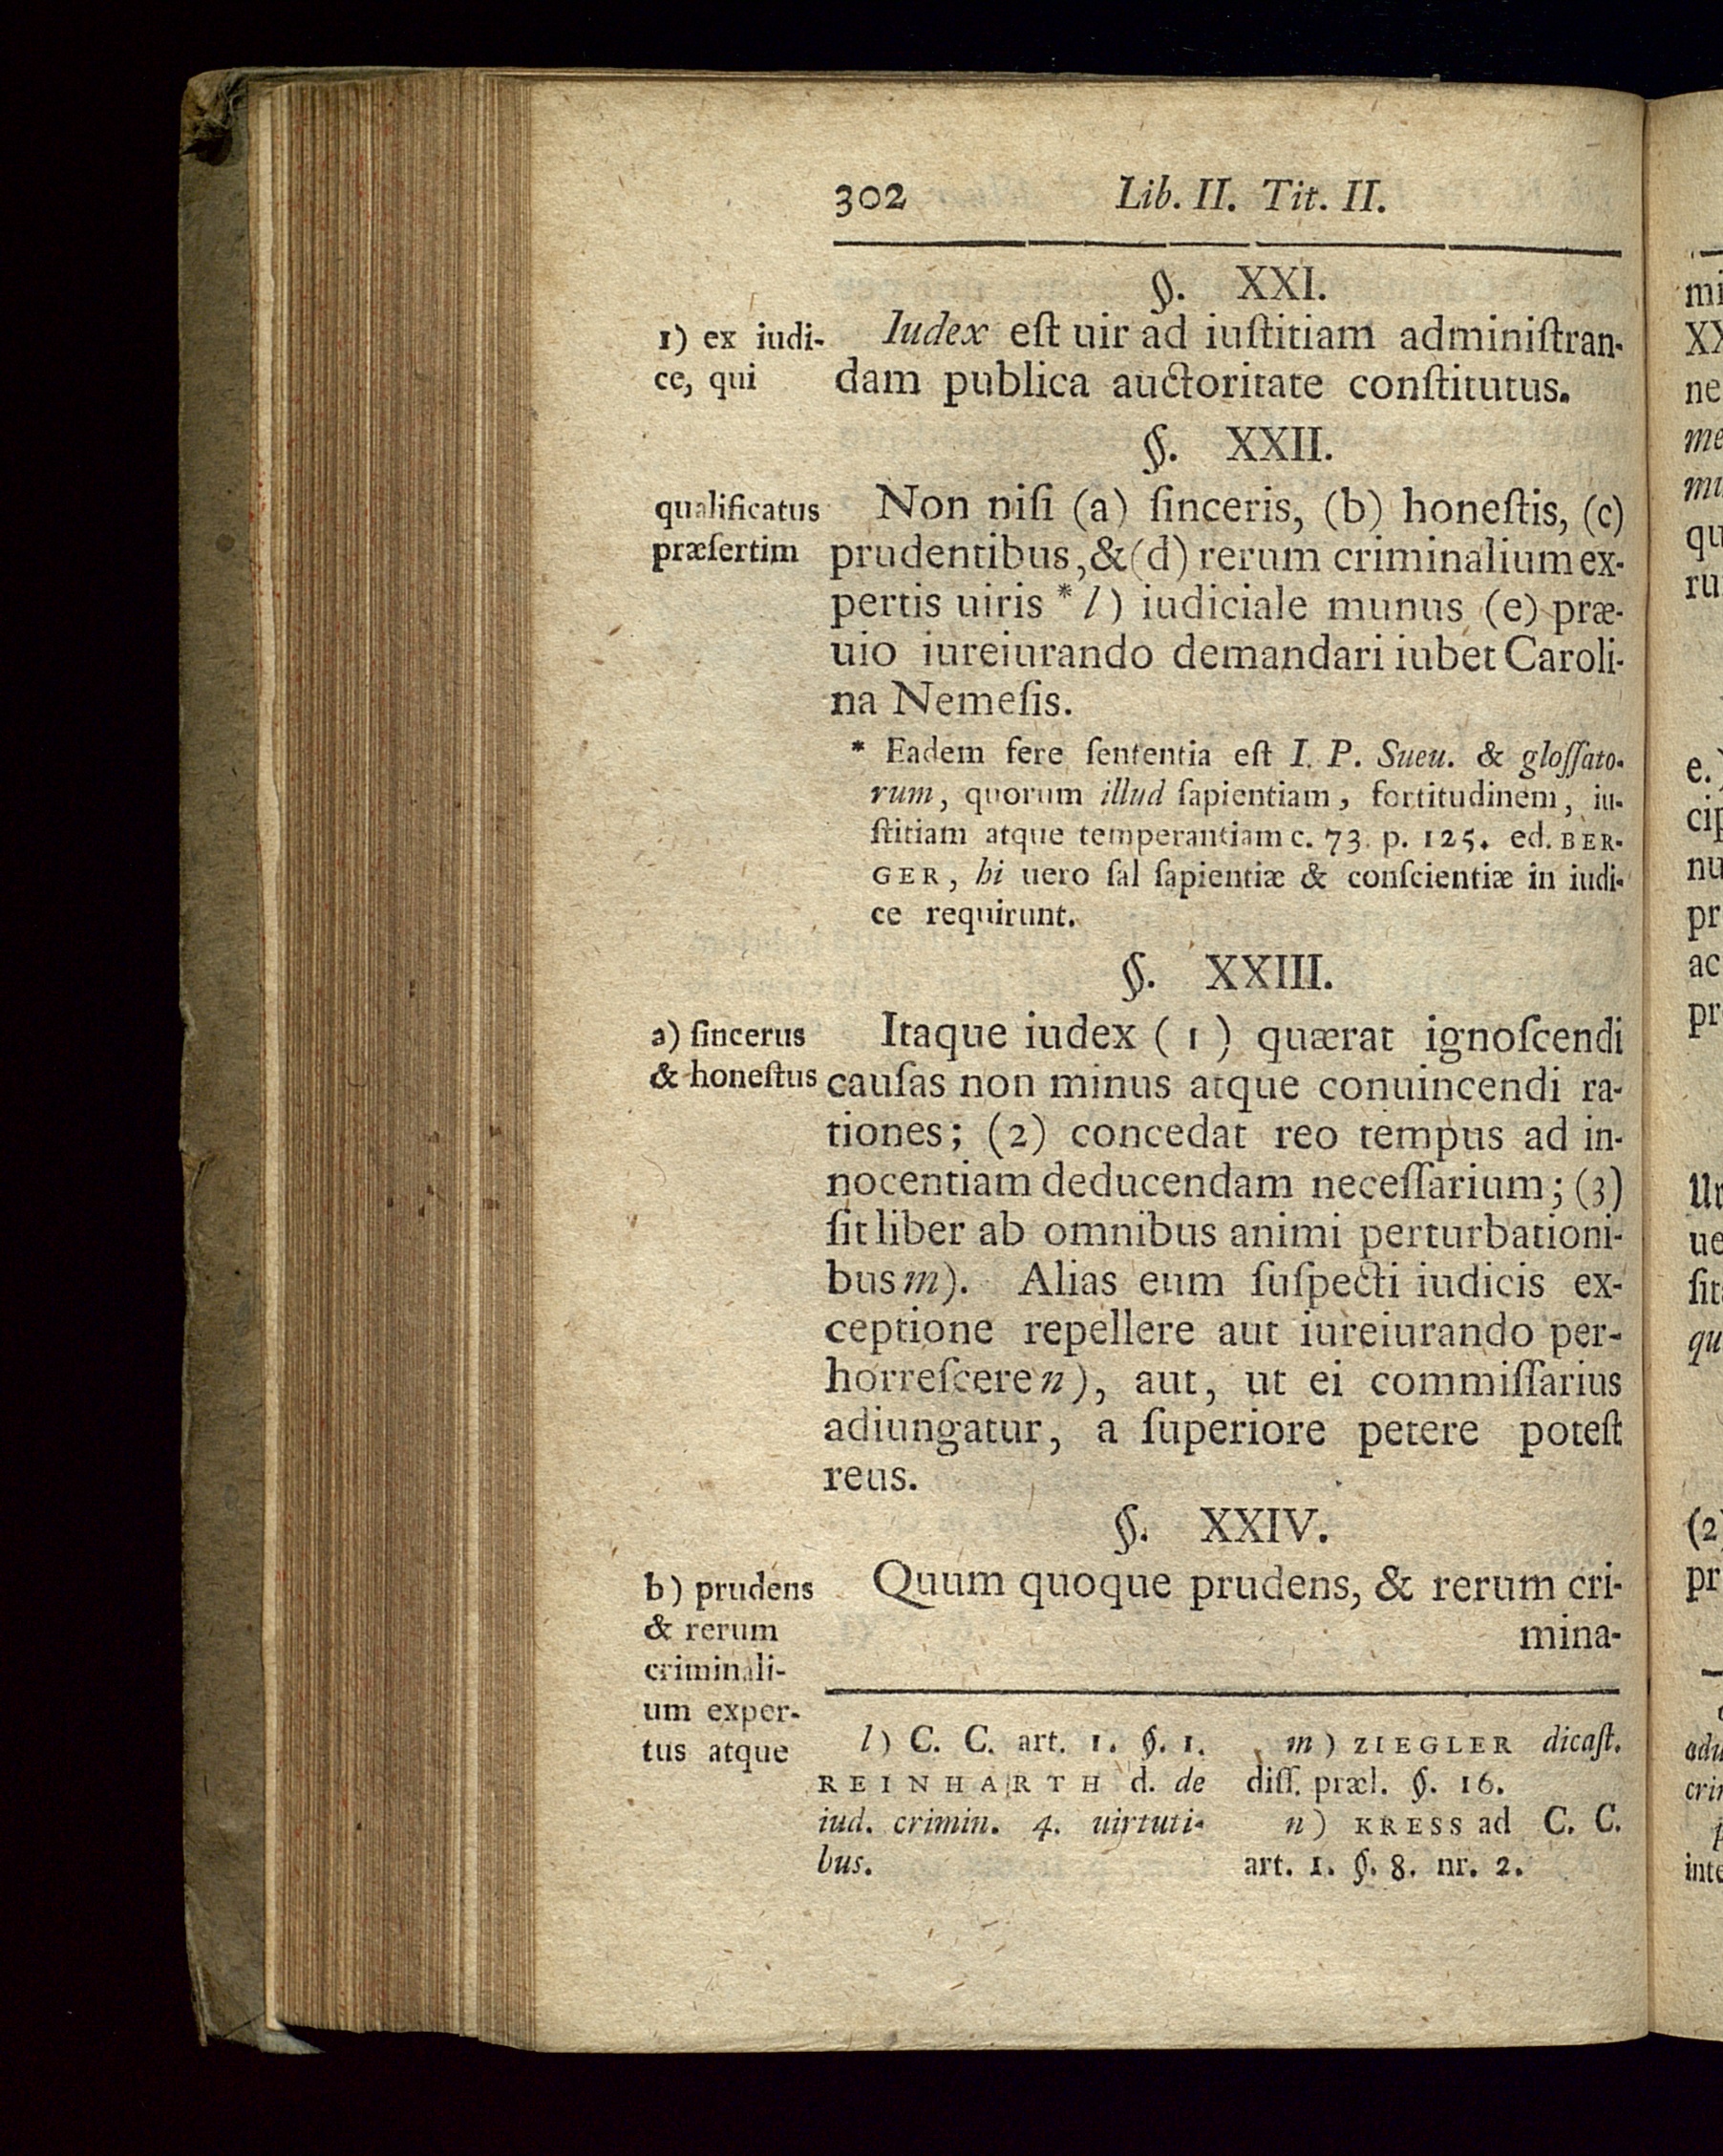 302 Lib. II. Tit. II.
§. XXI.
1) ex iudi-
ce, qui
Iudex eſt uir ad iuſtitiam adminiſtran-
dam publica auctoritate conſtitutus.
§. XXII.
qualificatus
præſertim
Non niſi (a) ſinceris, (b) honeſtis, (c)
prudentibus, &(d) rerum criminalium ex-
pertis uiris * l) iudiciale munus (e) præ-
uio iureiurando demandari iubet Caroli-
na Nemeſis.
* Eadem fere ſententia eſt I. P. Sueu. & gloſſato-
rum, quorum illud ſapientiam, fortitudinem, iu-
ſtitiam atque temperantiam c. 73. p. 125. ed. BER-
GER, hi uero ſal ſapientiæ & conſcientiæ in iudi-
ce requirunt.
§. XXIII.
a) ſincerus
& honeſtus
Itaque iudex (1) quærat ignoſcendi
cauſas non minus atque conuincendi ra-
tiones; (2) concedat reo tempus ad in-
nocentiam deducendam neceſſarium; (3)
ſit liber ab omnibus animi perturbationi-
bus m). Alias eum ſuſpecti iudicis ex-
ceptione repellere aut iureiurando per-
horreſcere n), aut, ut ei commiſſarius
adiungatur, a ſuperiore petere poteſt
reus.
§. XXIV.
b) prudens
& rerum
criminali-
um exper-
tus atque
Quum quoque prudens, & rerum cri-
mina-
l) C. C. art. 1. §. 1.
REINHARTH d. de
iud. crimin. 4. uirtuti-
bus.
m) ZIEGLER dicaſt.
diſſ. præl. §. 16.
n) KRESS ad C. C.
art. 1. §. 8. nr. 2.